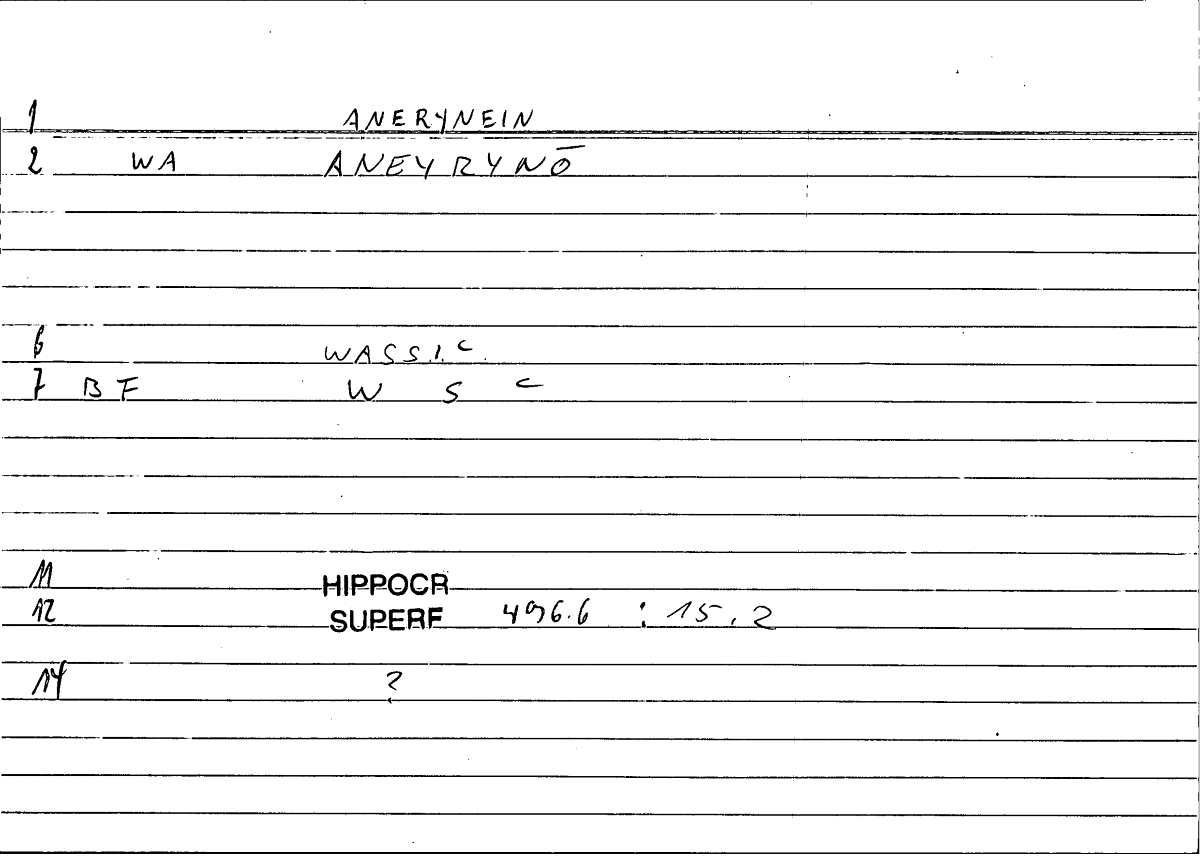 1 ANERYNEIN
2 WA ANEYRYNŌ
6 WASSI.C.
7 BF W S C
11 HIPPOCR
12 SUPERF 496.6 : 15.2
14 ?